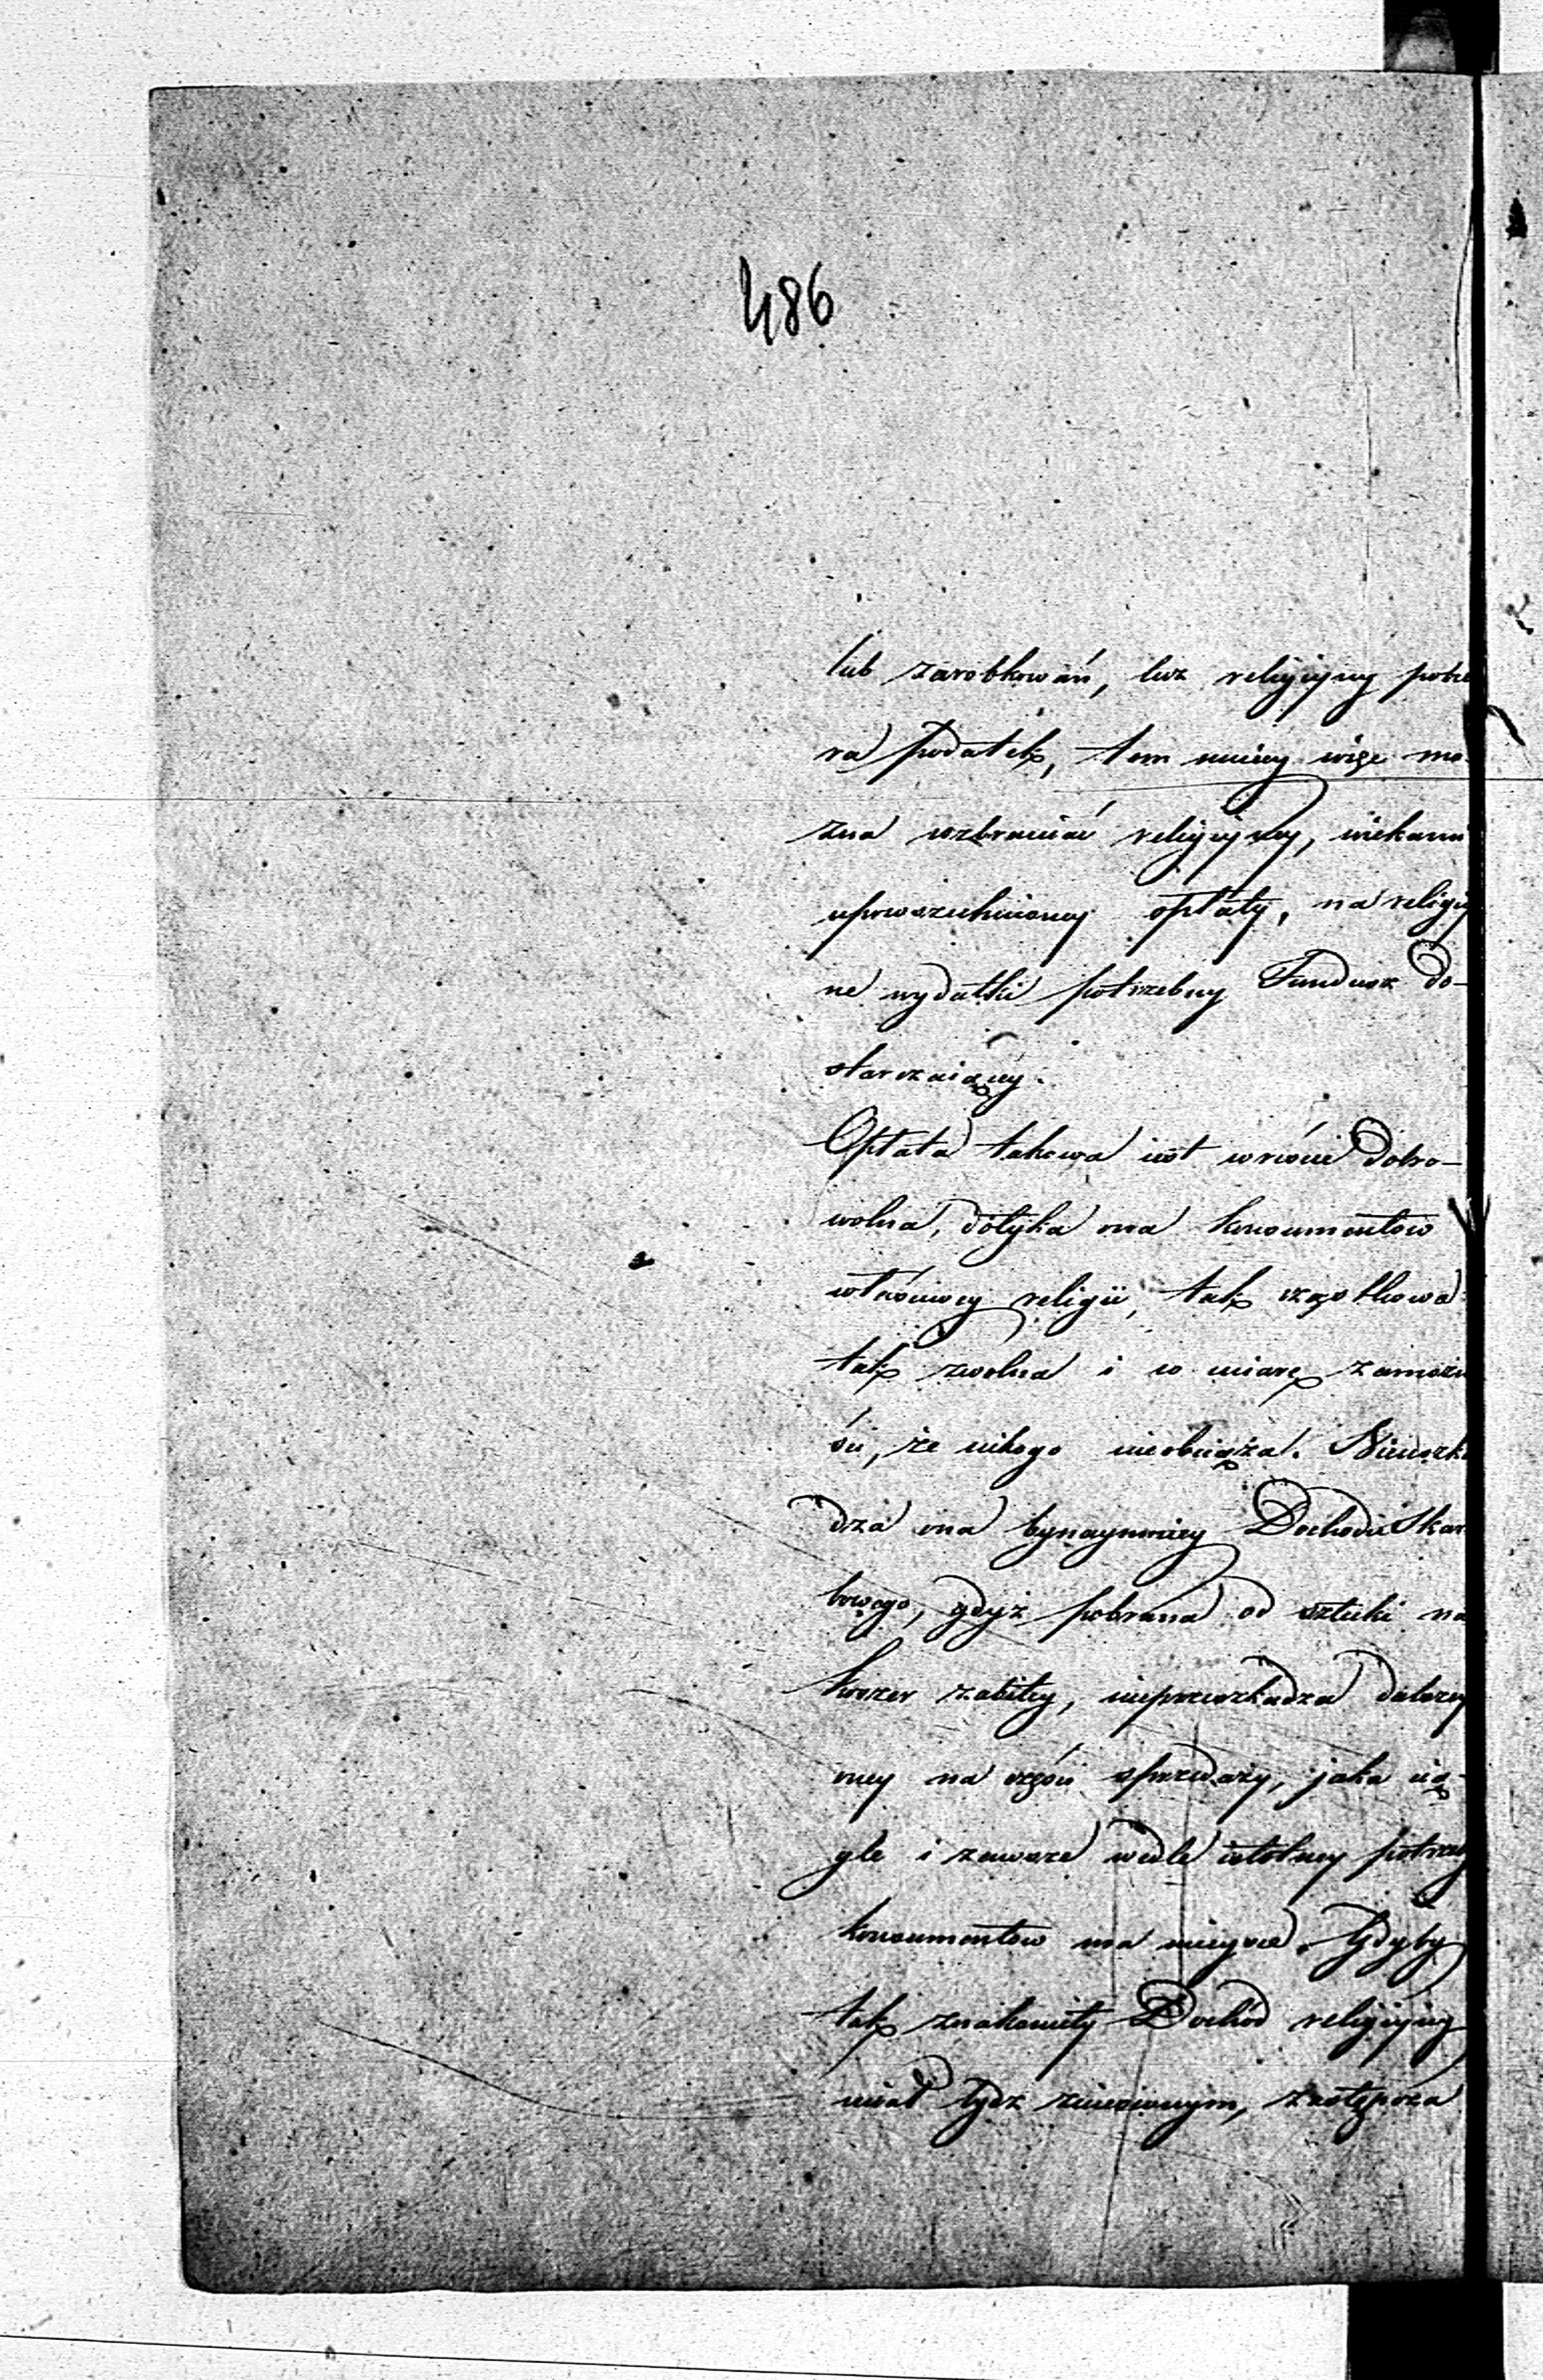 486
lub zarobkowań, lecz religijny pobie
ra podatek, tem mniey więc mo-
żna wzbraniać religijney, wiekami
upowszechnioney opłaty, na religiy
ne wydatki potrzebny Fundusz do-
starczaiącey.
Opłata takowa iest wrówni dobro-
wolna, dotyka ona konsumentów
właściwey religii, tak cząstkowo
tak zwolna i w miarę zamożno
ści, że nikogo nieobciąża. Nieuszka
dza ona bynaymniey Dochodu Skar
bowego, gdyż pobrana od sztuki na
koszer zabitey, nieprzeszkadza dalszey
mey na części sprzedaży, jaka cią-
gle i zawsze wedle istotney potrzeby
konsumentów ma mieysce. Gdyby
tak znakomity Dochód religijny
miał bydź zniesionym, zastępcza